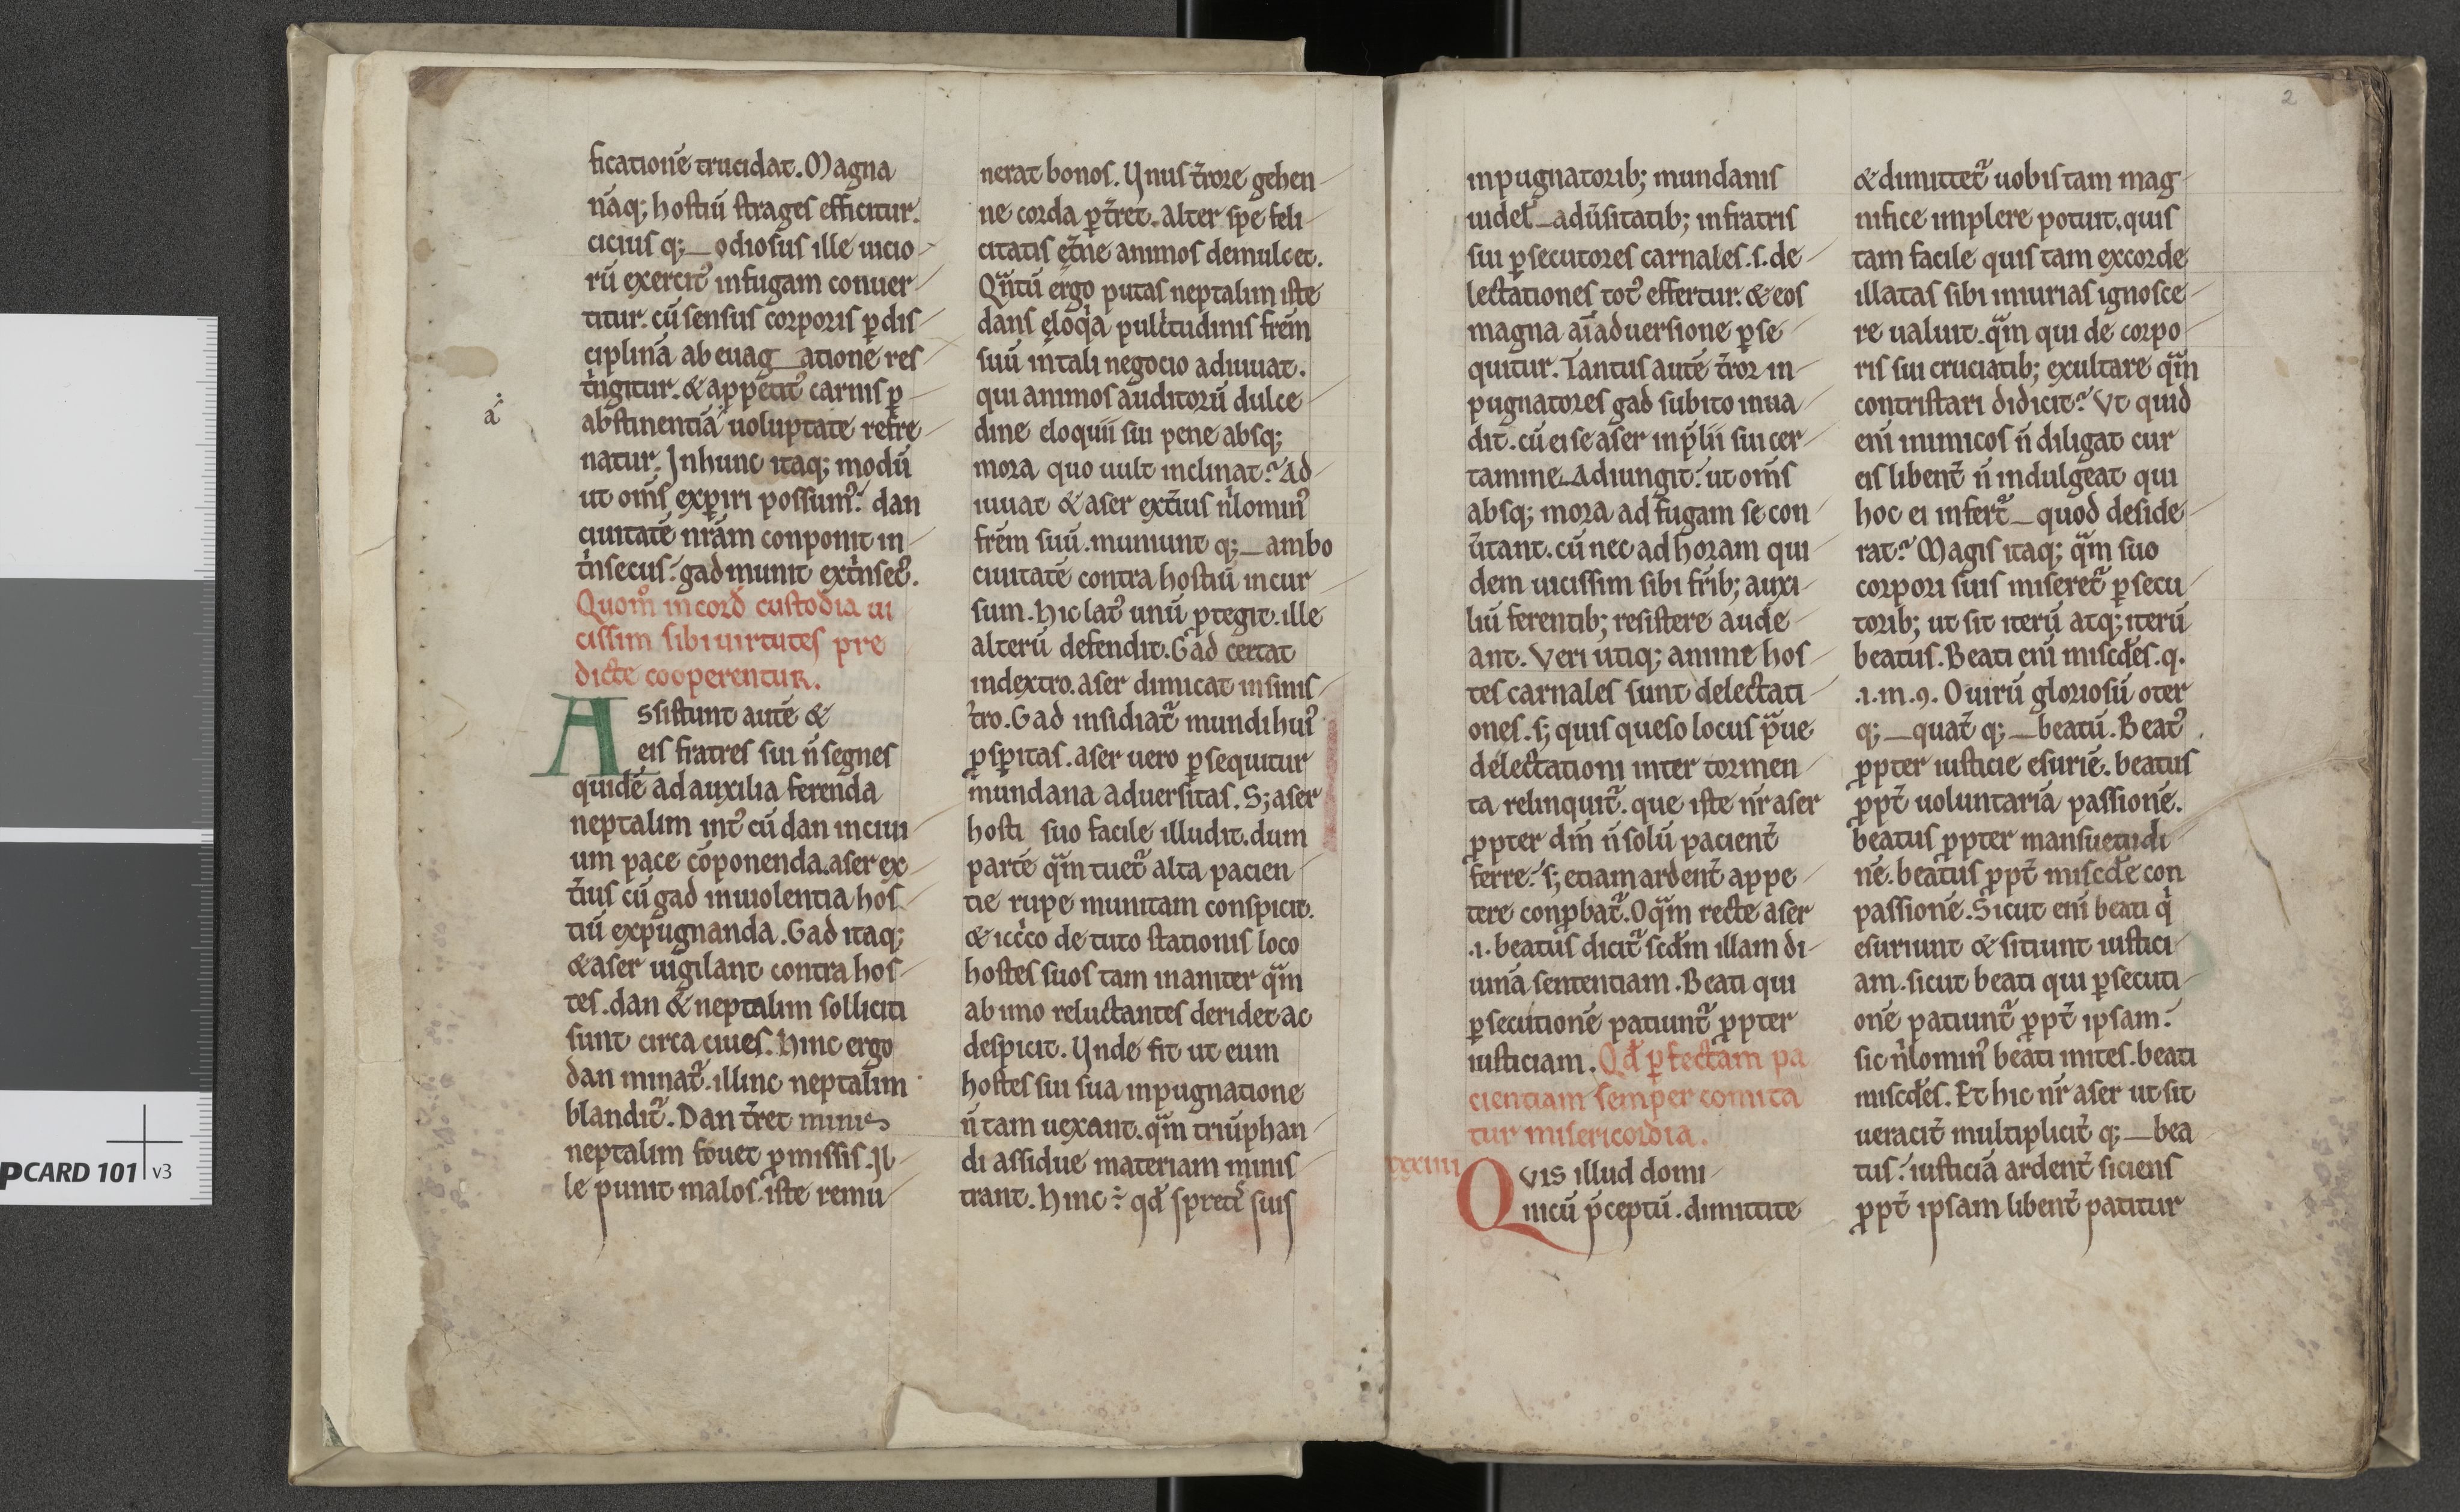 ficationē trucidat. Magna
nāq; hostiū strages efficitur.
cicius q; odiosus ille uicio
rū exercit᷒ in fugam conuer
titur. cū sensus corporis ꝑ dis
ciplinā ab euagatione res
tͥngitur. & appetit᷒ carnis ꝑ
abstinentiā uoluptate refre
natur. In hunc itaq; modū
ut om̄s experiri possum᷒. dan
ciuitatē nr̄am conponit in
tͥnsecus. gad munit extͥnsec᷒.
Quom̊ in cord custodia ui
cissim sibi uirtutes pre
dicte cooperentur.
Assistunt autē &
eis fratres sui n̄ segnes
quidē ad auxilia ferenda
neptalim int᷒ cū dan in ciui
um pace cōponenda. aser ex
t̄ius cū gad in uiolentia hos
tiū expugnanda. Gad itaq;
& aser uigilant contra hos
tes. dan & neptalim solliciti
sunt circa ciues. Hinc ergo
dan minat᷑. illinc neptalim
blandit᷑. Dan t̄ret minis
neptalim fouet ꝓmissis. Il
le punit malos. iste remu
a᷑
nerat bonos. Unus t̄rore gehen
ne corda ꝑt̄ret. alter spe feli
citatis et̄ne animos demulcet.
Qᷓntū ergo putas neptalim iste
dans eloqͥa pulc̄tudinis fr̄em
suū in tali negocio adiuuat.
qui animos auditorū dulce
dine eloquii sui pene absq;
mora quo uult inclinat? Ad
iuuat & aser ext̄ius nͥlomin᷒
fr̄em suū. muniunt q; ambo
ciuitatē contra hostiū incur
sum. Hic lat᷒ unū ꝓtegit. ille
alterū defendit. Gad certat
in dextro. aser dimicat in sinis
tro. Gad insidiat᷑ mundi hui᷒
ꝓsꝑitas. aser uero ꝑsequitur
mundana aduersitas. S; aser
hosti suo facile illudit. dum
partē qᷓm tuet᷑ alta pacien
tie rupe munitam conspicit.
& iccͥco de tuto stationis loco
hostes suos tam inaniter qᷓm
ab imo reluctantes deridet ac
despicit. Unde fit ut eum
hostes sui sua inpugnatione
n̄ tam uexant. qᷓm triūphan
di assidue materiam minis
trant. Hinc ÷ qđ spretͥ suis
2
inpugnatorib; mundanis
uidel᷒ adūsitatib; in fratris
sui ꝑsecutores carnales .s. de
lectationes tot᷒ effertur. & eos
magna aīaduersione ꝑse
quitur. Tantus autē t̄ror in
pugnatores gad subito inua
dit. cū ei se aser in p̄lii sui cer
tamine adiungit. ut om̄s
absq; mora ad fugam se con
ūtant. cū nec ad horam qui
dem uicissim sibi fr̄ib; auxi
liū ferentib; resistere aude
ant. Veri utiq; anime hos
tes carnales sunt delectati
ones. s; quis queso locus p̄ue
delectationi inter tormen
ta relinquit᷑. que iste nr̄ aser
ꝓpter dm̄ n̄ solū pacient̄
ferre. s; etiam ardent̄ appe
tere conꝓbat᷑. O qᷓm recte aser
.i. beatus dicit᷑ scđm illam di
uinā sententiam. Beati qui
ꝑsecutionē patiunt᷑ ꝓpter
iusticiam. Qđ ꝑfectam pa
cientiam semper comita
tur misericordia.
Qvis illud domi
nicū p̄ceptū. dimittite
& dimittet᷑ uobis tam mag
nifice implere potuit. quis
tam facile quis tam ex corde
illatas sibi iniurias ignosce
re ualuit. qᷓm qui de corpo
ris sui cruciatib; exultare qᷓm
contristari didicit? Vt quid
enī inimicos n̄ diligat cur
eis libent̄ n̄ indulgeat qui
hoc ei infert᷑ quod deside
rat? Magis itaq; qᷓm suo
corpori suis miseret᷑ ꝑsecu
torib; ut sit iterū atq; iterū
beatus. Beati enī misc̄des. q.
.i. m. 9. O uirū gloriosū oter
q; quat̄ q; beatū. Beat᷒
ꝓpter iusticie esuriē. beatus
ꝓpt̄ uoluntariā passionē.
beatus ꝓpter mansuetudi
nē. beatus ꝓpt̄ misc̄de con
passionē. Sicut enī beati qͥ
esuriunt & sitiunt iustici
am. sicut beati qui ꝑsecuti
onē patiunt᷑ ꝓpt̄ ipsam.
sic nͥlomin᷒ beati mites. beati
misc̄des. Et hic nr̄ aser ut sit
ueracit̄ multiplicit̄ q; bea
tus. iusticiā ardent̄ siciens
ꝓpt̄ ipsam libent̄ patitur
PCARD 101 v3